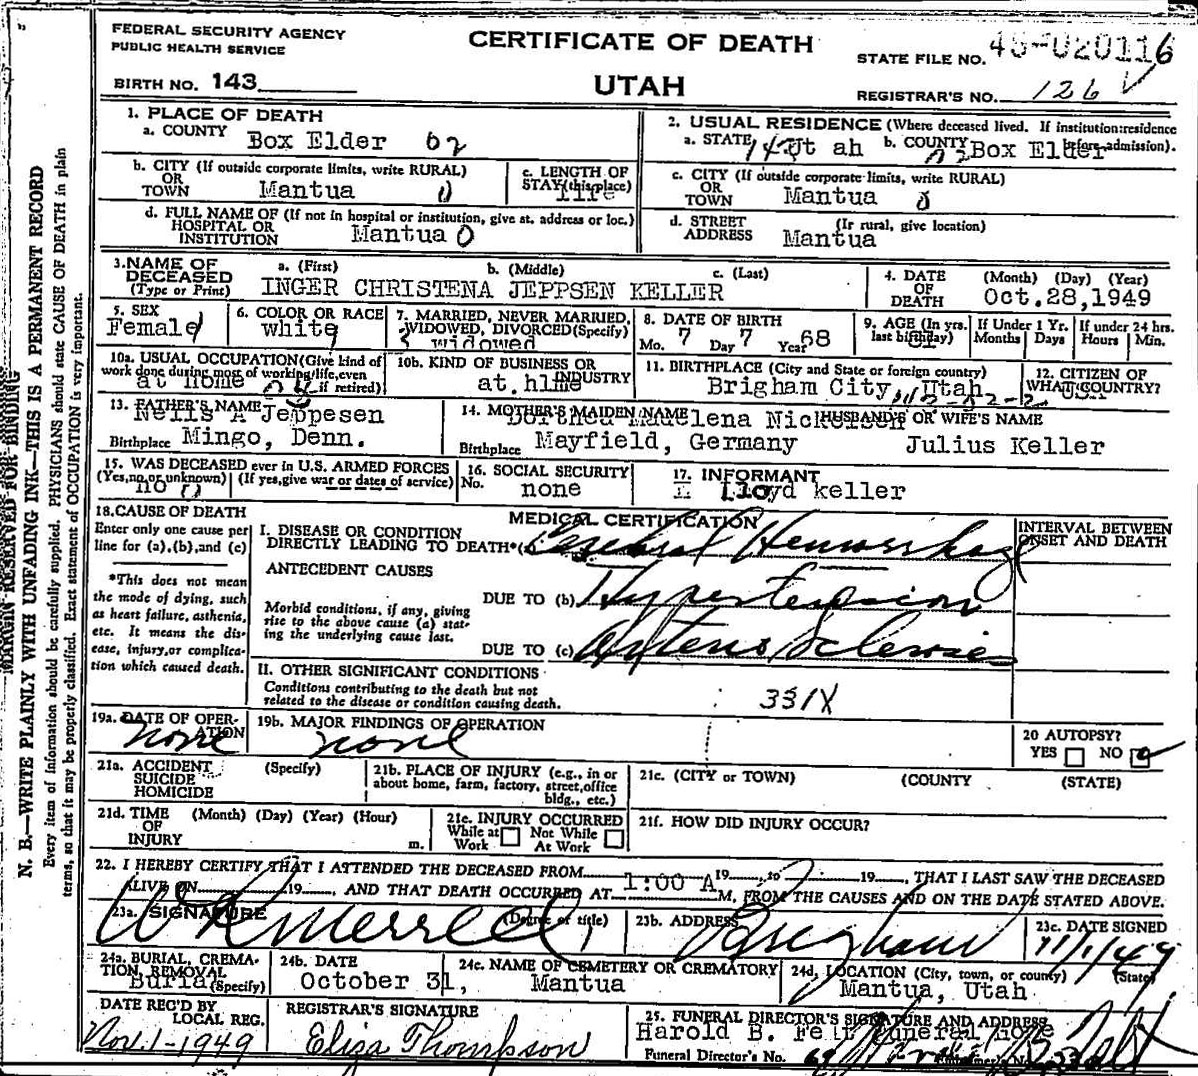 FEDERAL SECURITY AGENCY
PUBLIC HEALTH SERVICE
CERTIFICATE OF DEATH
STATE FILE NO. 020116
BIRTH NO. 143
UTAH
REGISTRAR'S NO. 126
MARGIN RESERVED FOR BINDING
N. B.—WRITE PLAINLY WITH UNFADING INK—THIS IS A PERMANENT RECORD
Every item of information should be carefully supplied. PHYSICIANS should state CAUSE OF DEATH in plain
terms, so that it may be properly classified. Exact statement of OCCUPATION is very important.
1. PLACE OF DEATH
a. COUNTY Box Elder 02
b. CITY (If outside corporate limits, write RURAL)
OR
TOWN Mantua 0
c. LENGTH OF
STAY (this place)
life
d. FULL NAME OF (If not in hospital or institution, give st. address or loc.)
HOSPITAL OR
INSTITUTION Mantua 0
2. USUAL RESIDENCE (Where deceased lived. If institution:residence
before admission).
a. STATE Utah b. COUNTY Box Elder
c. CITY (If outside corporate limits, write RURAL)
OR
TOWN Mantua
d. STREET (Ir rural, give location)
ADDRESS Mantua
3. NAME OF
DECEASED
(Type or Print)
a. (First) b. (Middle) c. (Last)
INGER CHRISTENA JEPPSEN KELLER
4. DATE (Month) (Day) (Year)
OF
DEATH Oct.28,1949
5. SEX
Female
6. COLOR OR RACE
white
7. MARRIED, NEVER MARRIED,
WIDOWED, DIVORCED(Specify)
widowed
8. DATE OF BIRTH
Mo. 7 Day 7 Year 68
9. AGE (In yrs.
last birthday)
81
If Under 1 Yr.
Months Days
If under 24 hrs.
Hours Min.
10a. USUAL OCCUPATION(Give kind of
work done during most of working life, even
if retired)
at home
10b. KIND OF BUSINESS OR
INDUSTRY
at.
11. BIRTHPLACE (City and State or foreign country)
Brigham City, Utah
12. CITIZEN OF
WHAT COUNTRY?
USA
13. FATHER'S NAME
Jeppesen
Birthplace Mingo, Denn.
14. MOTHER'S MAIDEN NAME
Birthplace Mayfield, Germany
HUSBAND'S OR WIFE'S NAME
Julius Keller
15. WAS DECEASED ever in U.S. ARMED FORCES
(Yes,no,or unknown) (If yes,give war or dates of service)
no 0
16. SOCIAL SECURITY
No. none
17. INFORMANT
Lloyd keller
18. CAUSE OF DEATH
Enter only one cause per
line for (a),(b),and (c)
*This does not mean
the mode of dying, such
as heart failure, asthenia,
etc. It means the dis-
ease, injury,or complica-
tion which caused death.
MEDICAL CERTIFICATION
INTERVAL BETWEEN
ONSET AND DEATH
I. DISEASE OR CONDITION
DIRECTLY LEADING TO DEATH*(a) Cerebral Hemorrhage
ANTECEDENT CAUSES
DUE TO (b) Hypertension
Morbid conditions, if any, giving
rise to the above cause (a) stat-
ing the underlying cause last.
DUE TO (c) Arterio Sclerosis
II. OTHER SIGNIFICANT CONDITIONS
Conditions contributing to the death but not
related to the disease or condition causing death.
331X
19a. DATE OF OPER-
ATION
none
19b. MAJOR FINDINGS OF OPERATION
none
20 AUTOPSY?
YES NO
21a. ACCIDENT (Specify)
SUICIDE
HOMICIDE
21b. PLACE OF INJURY (e.g., in or
about home, farm, factory, street,office
bldg., etc.)
21c. (CITY or TOWN) (COUNTY (STATE)
21d. TIME (Month) (Day) (Year) (Hour)
OF
INJURY m.
21e. INJURY OCCURRED
While at Not While
Work At Work
21f. HOW DID INJURY OCCUR?
22. I HEREBY CERTIFY THAT I ATTENDED THE DECEASED FROM 19 , to 19 , THAT I LAST SAW THE DECEASED
ALIVE ON 19 , AND THAT DEATH OCCURRED AT 1:00 A M, FROM THE CAUSES AND ON THE DATE STATED ABOVE.
23a. SIGNATURE (Degree or title)
W R Merrell
23b. ADDRESS
Brigham
23c. DATE SIGNED
11/1/49
24a. BURIAL, CREMA-
TION, REMOVAL
(Specify)
Burial
24b. DATE
October 31,
24c. NAME OF CEMETERY OR CREMATORY
Mantua
24d. LOCATION (City, town, or county) (State)
Mantua, Utah
DATE REC'D BY
LOCAL REG.
Nov. 1-1949
REGISTRAR'S SIGNATURE
Eliza Thompson
25. FUNERAL DIRECTOR'S SIGNATURE AND ADDRESS
Harold B. Felt Funeral Home
Funeral Director's No.